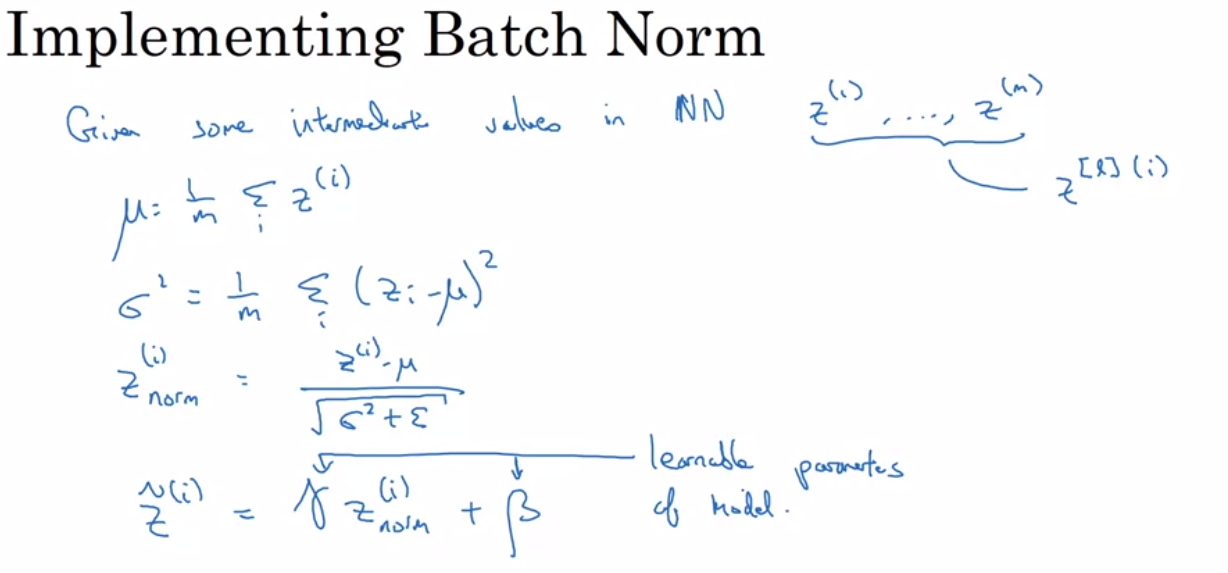 Implementing Batch Norm
Given some intermediate values in NN z^(1), ...., z^(m)
z^[l](i)
μ = 1/m Σ_i z^(i)
σ² = 1/m Σ_i (z_i - μ)²
z_norm^(i) = (z^(i) - μ) / √(σ² + ε)
z̃^(i) = γ z_norm^(i) + β
learnable parameters
of model.